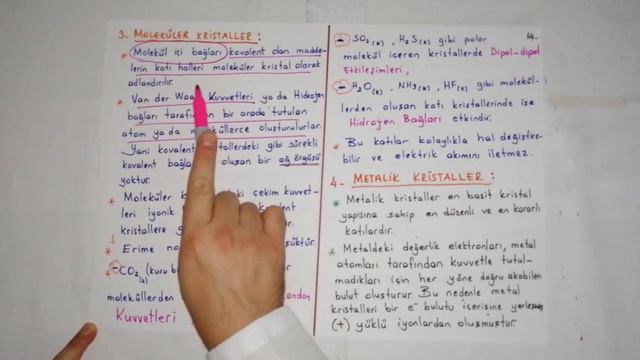 3. MOLEKÜLER KRİSTALLER :
* Molekül içi bağları kovalent olan madde-
lerin katı halleri moleküler kristal olarak
adlandırılır.
* Van der Waals Kuvvetleri ya da Hidrojen
bağları tarafından bir arada tutulan
atom ya da moleküllerce oluşturulurlar.
Yani kovalent kristallerdeki gibi sürekli
kovalent bağlardan oluşan bir ağ örgüsü
yoktur.
* Moleküler deki çekim kuvvet-
leri iyonik
kristallere
* Erime no
- CO₂(k) (kuru b
moleküllerden
Kuvvetleri
14-
- SO₂(k) , H₂S(k) gibi polar
molekül içeren kristallerde Dipol-dipol
Etkileşimleri,
- H₂O(k), NH₃(k), HF(k) gibi molekül-
lerden oluşan katı kristallerinde ise
Hidrojen Bağları etkindir.
* Bu katılar kolaylıkla hal değiştire-
bilir ve elektrik akımını iletmez.
4- METALİK KRİSTALLER :
* Metalik kristaller en basit kristal
yapısına sahip en düzenli ve en kararlı
katılardır.
* Metaldeki değerlik elektronları, metal
atomları tarafından kuvvetle tutul-
madıkları için her yöne doğru akabilen
bulut oluşturur. Bu nedenle metal
kristalleri bir e⁻ bulutu içerisine yerleşmiş
(+) yüklü iyonlardan oluşmuştur.